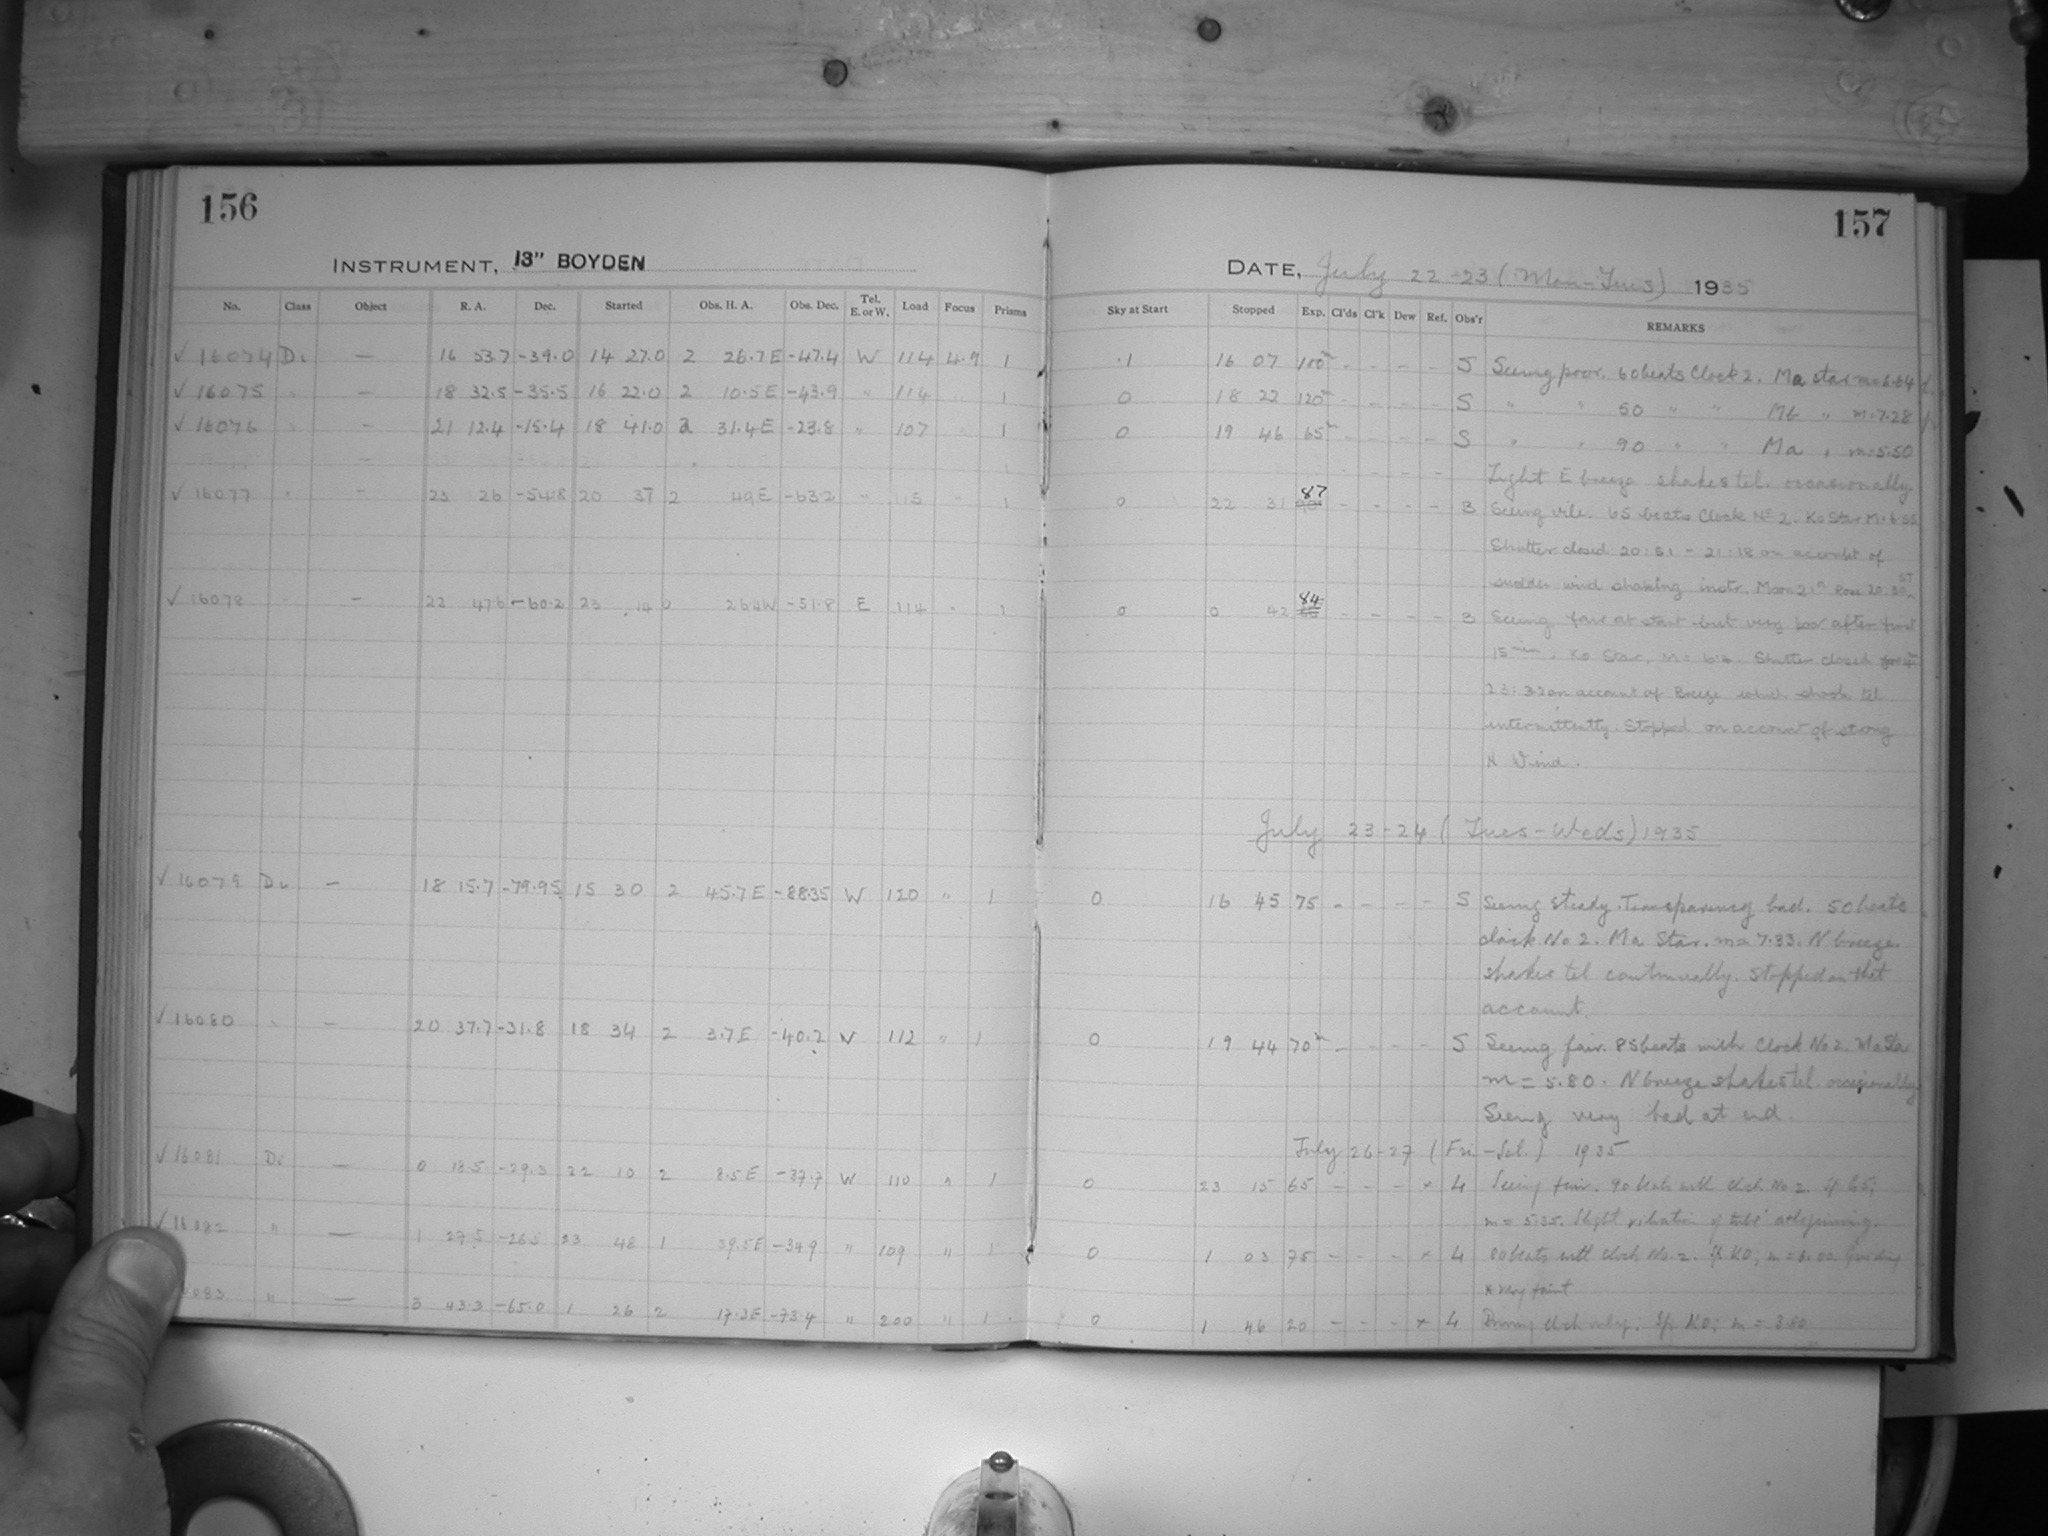 156
157
INSTRUMENT, 13" BOYDEN
DATE, July 22-23 (Mon-Tues) 1935
No. Class Object R. A. Dec. Started Obs. H. A. Obs. Dec. Tel. E. or W. Load Focus Prisms Sky at Start Stopped Exp. Cl'ds Cl'k Dew Ref. Obs'r REMARKS
✓ 16074 Dc — 16 53.7 -39.0 14 27.0 2 26.7 E -47.4 W 114 4.9 1 .1 16 07 100m - - - - S Seeing poor. 60 beats Clock 2. Ma star m=6.64
✓ 16075 " - 18 32.5 -35.5 16 22.0 2 10.5 E -43.9 " 114 " 1 0 18 22 120m - - - - S " " 50 " " Mb " m=7.28
✓ 16076 " - 21 12.4 -15.4 18 41.0 2 31.4 E -23.8 " 107 " 1 0 19 46 65m - - - - S " " 90 " " Ma " m=5.50
Light E breeze shakes tel. occasionally
✓ 16077 " - 23 26 -54.8 20 37 2 49 E -63.2 " 115 " 1 0 22 31 87 - - - - B Seeing vile. 65 beats Clock No 2. K0 Star M=6.55
Shutter closed 20:51 - 21:18 on account of
sudden wind shaking instr. Moon 21d Rose 20:30 ST
✓ 16078 - - 22 47.6 -60.2 23 14 0 26.4 W -51.8 E 114 " 1 0 0 42 84 - - - - B Seeing fair at start but very poor after first
15 min. K0 Star, m= Shutter closed
23:32 on account of Breeze which shook tel
intermittently. Stopped on account of strong
N Wind.
July 23-24 (Tues-Weds) 1935
✓ 16079 Dc — 18 15.7 -79.95 15 30 2 45.7 E -88.35 W 120 " 1 0 16 45 75 - - - - S Seeing steady. Transparency bad. 50 beats
clock No 2. Ma Star. m=7.33. N breeze
shakes tel continually. Stopped on that
account.
✓ 16080 " - 20 37.7 -31.8 18 34 2 3.7 E -40.2 W 112 " 1 0 19 44 70m - - - - S Seeing fair. 85 beats with Clock No 2. Ma Sta
m = 5.80. N breeze shakes tel. occasionally
Seeing very bad at end.
July 26-27 (Fri.-Sat.) 1935
✓ 16081 Dc — 0 18.5 -29.3 22 10 2 8.5 E -37.7 W 110 " 1 0 23 15 65 - - - x 4 Seeing fair. 90 beats with clock No 2. Sp G5;
m = 5.35. Slight vibration of tube at beginning.
✓ 16082 " — 1 27.5 -26.5 23 48 1 39.5 E -34.9 " 109 " 1 0 1 03 75 - - - x 4 80 beats with clock No. 2. Sp K0; m = 6.00
x very faint
083 " — 3 43.3 -65.0 1 26 2 17.3 E -73.4 " 200 " 1 0 1 46 20 - - - x 4 Driving clock only; Sp. K0; m = 3.80